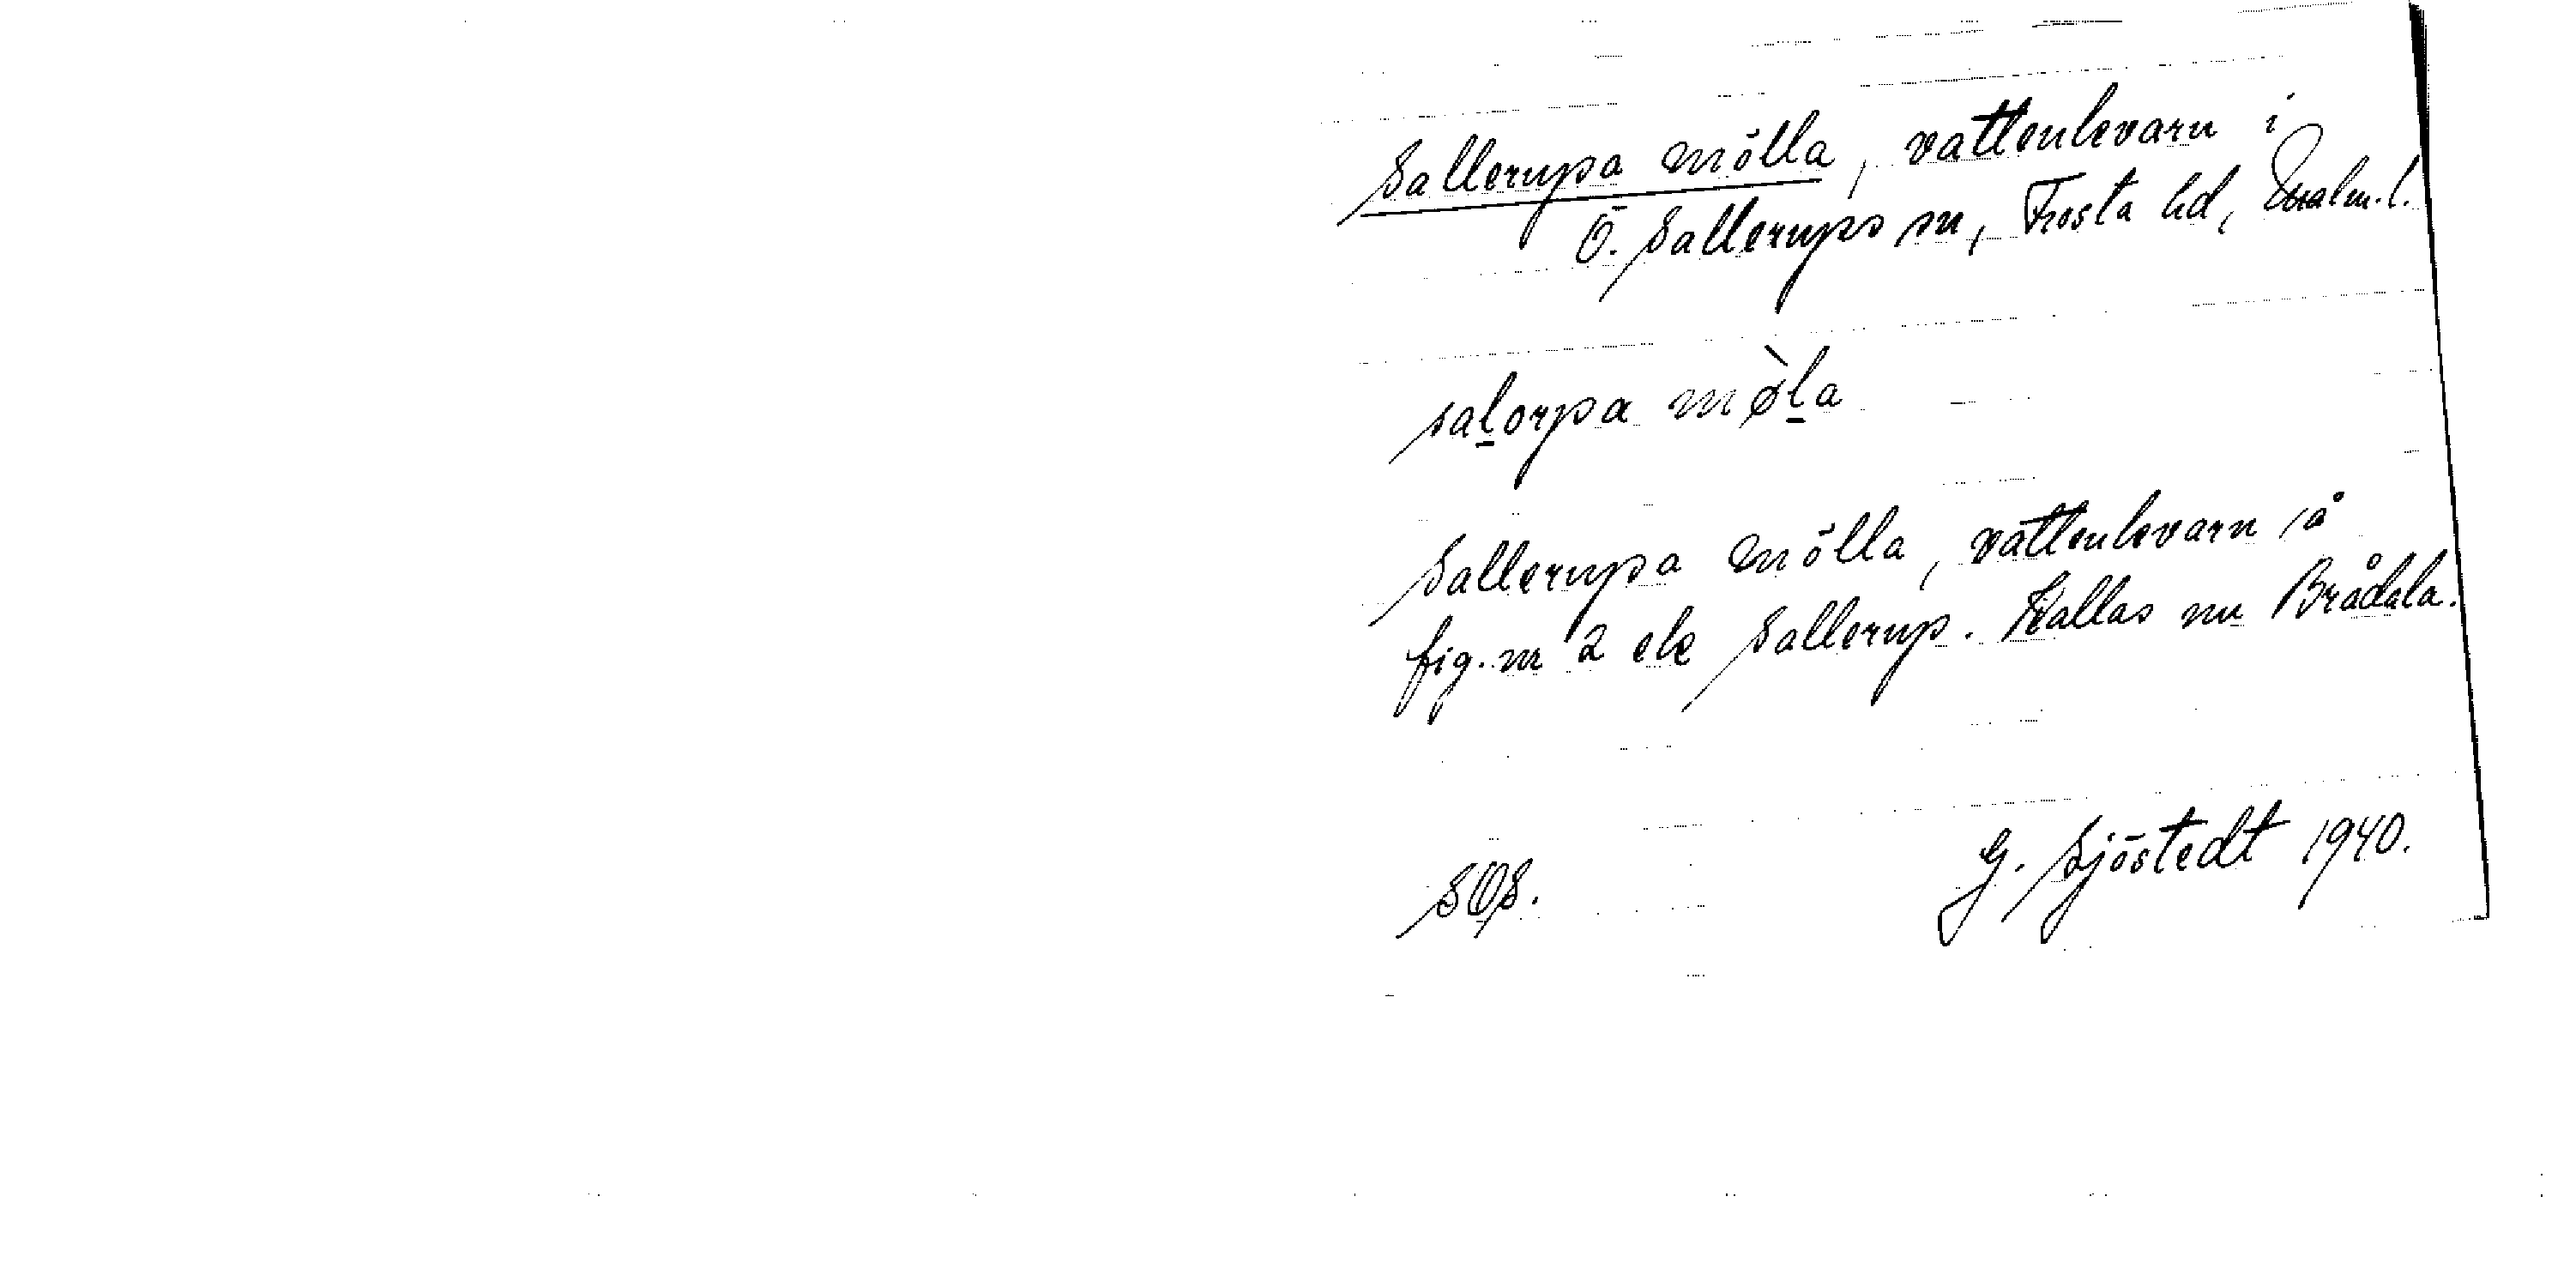 Sallerupa mölla, vattenkvarn i
Ö. Sallerups sn, Frosta hd, Malm. l.
salorpa mø̀la
Sallerupa mölla, vattenkvarn å
fig. nr 2 ek Sallerup. Kallas nu Brådala.
SOS.
G. Sjöstedt 1940.